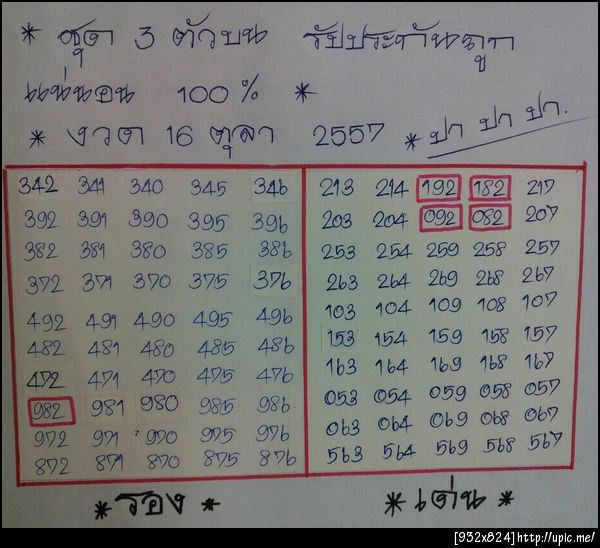 * ชุด 3 ตัวบน รับประกันถูก
แน่นอน 100% *
* งวด 16 ตุลา 2557 * ปา ปา ปา.
342 341 340 345 346 213 214 192 182 217
392 391 390 395 396 203 204 092 082 207
382 381 380 385 386 253 254 259 258 257
372 371 370 375 376 263 264 269 268 267
492 491 490 495 496 103 104 109 108 107
482 481 480 485 486 153 154 159 158 157
472 471 470 475 476 163 164 169 168 167
982 981 980 985 986 053 054 059 058 057
972 971 970 975 976 063 064 069 068 067
872 871 870 875 876 563 564 569 568 567
* รอง * * เด่น *
[952x824]http://upic.me/